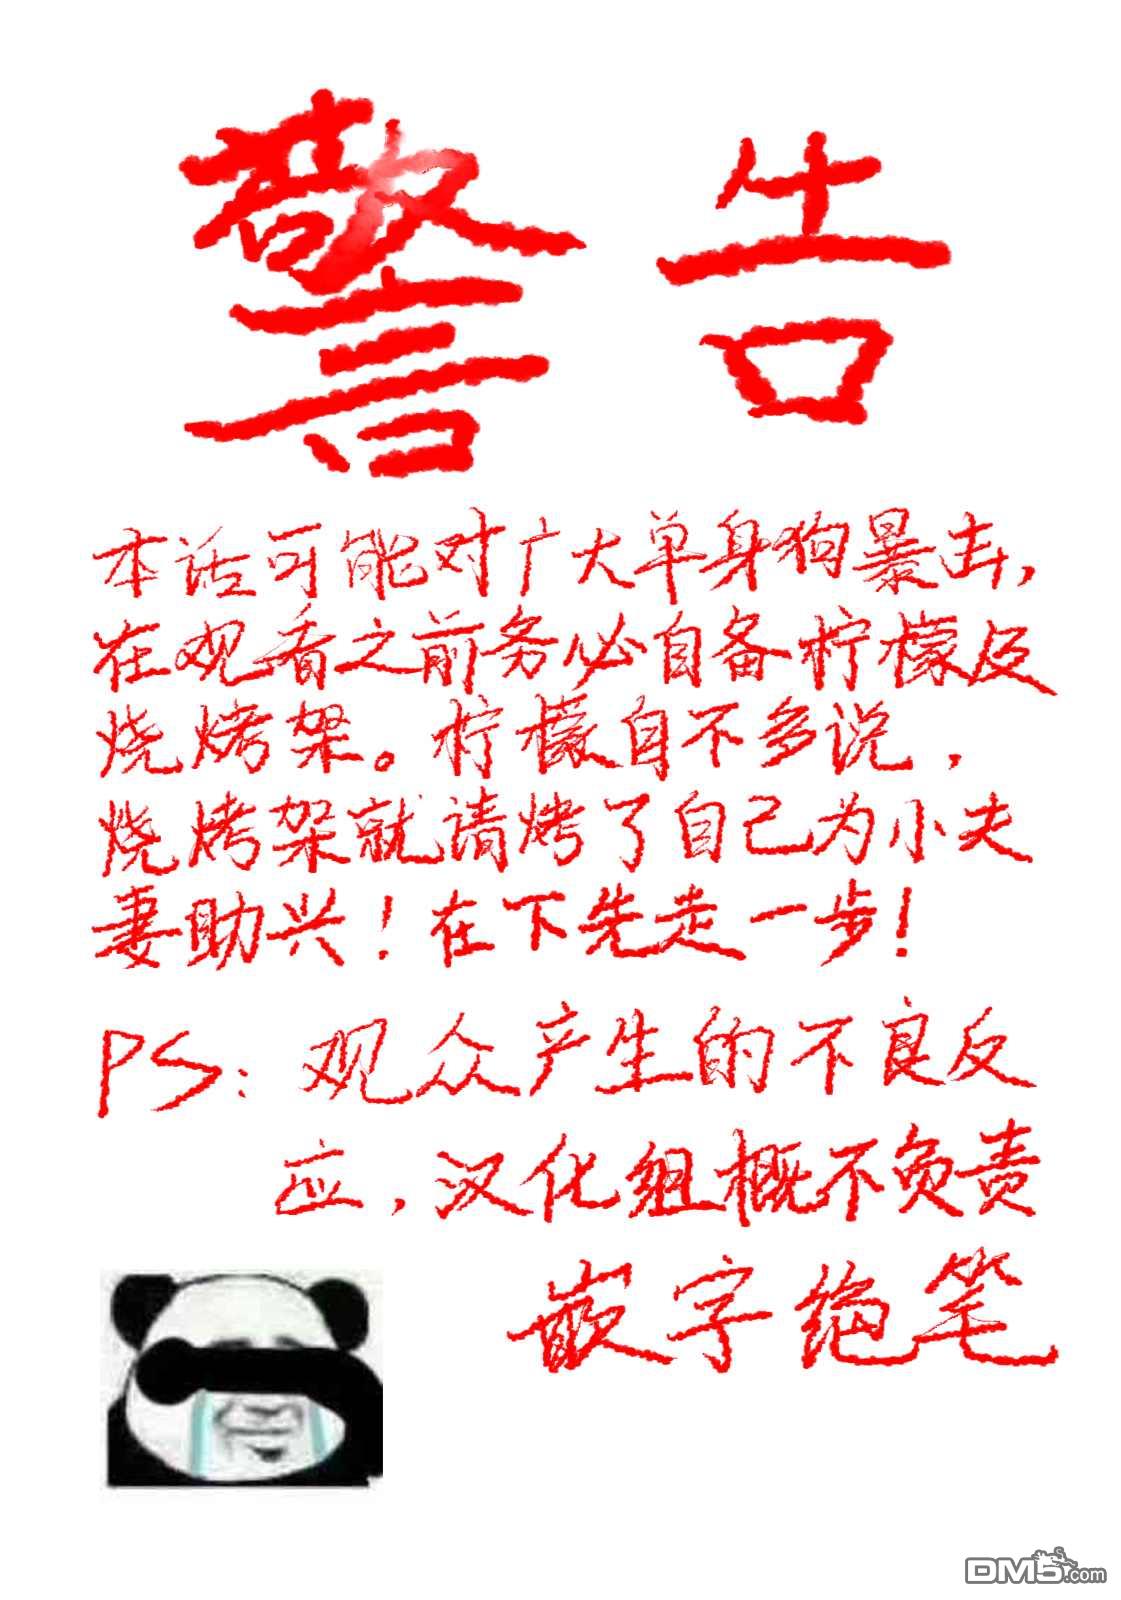 警告
本话可能对广大单身狗暴击，
在观看之前务必自备柠檬及
烧烤架。柠檬自不多说，
烧烤架就请烤了自己为小夫
妻助兴！在下先走一步！
PS：观众产生的不良反
应，汉化组概不负责
嵌字绝笔
DM5.com